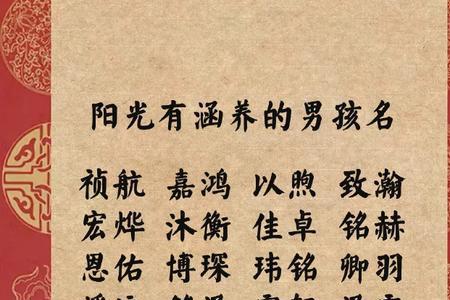 阳光有涵养的男孩名
祯航 嘉鸿 以煦 致瀚
宏烨 沐衡 佳卓 铭赫
恩佑 博琛 玮铭 卿羽